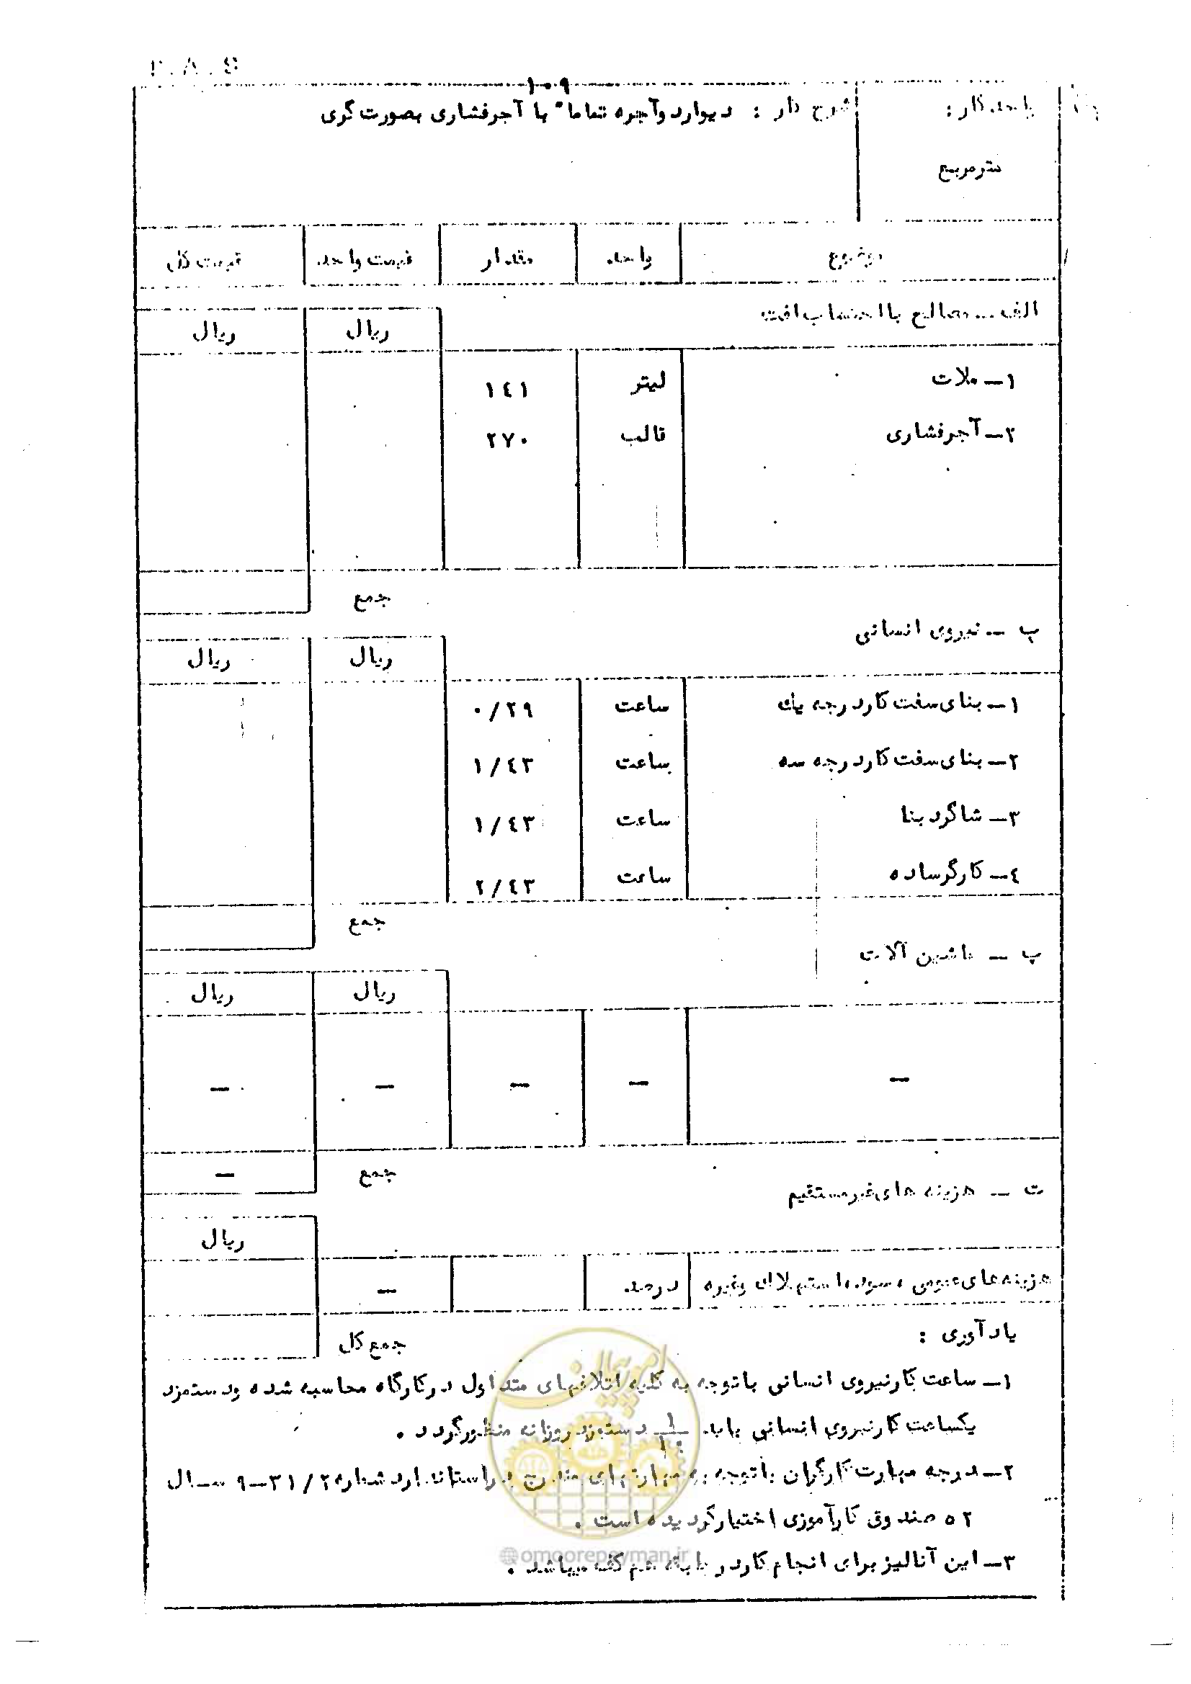 ۱۰۹
واحد کار :
شرح کار : دیوار دوآجره تماما" با آجرفشاری بصورت کری
مترمربع
موضوع واحد مقدار قیمت واحد قیمت کل
الف ــ مصالح با احتساب افت
ریال ریال
۱ــ ملات لیتر ۱٤۱
۲ــ آجرفشاری قالب ۲۷۰
جمع
ب ــ نیروی انسانی
ریال ریال
۱ــ بنای سفت کار درجه یک ساعت ۰/۲۹
۲ــ بنای سفت کار درجه سه ساعت ۱/٤۳
۳ــ شاگرد بنا ساعت ۱/٤۳
٤ــ کارگر ساده ساعت ۲/٤۳
جمع
پ ــ ماشین آلات
ریال ریال
— — — — —
جمع —
ت ــ هزینه های غیرمستقیم
ریال
هزینه های عمومی ، سود، استهلاک وغیره درصد —
جمع کل
یادآوری :
۱ــ ساعت کارنیروی انسانی باتوجه به کلیه اتلافهای متداول درکارگاه محاسبه شده ودستمزد
یکساعت کارنیروی انسانی باید دستمزد روزانه منظورگردد .
۲ــ درجه مهارت کارگران باتوجه به مهارتهای مندرج در استاندارد شماره ۲/ ۳۱ــ۹ سال
۲٥ صندوق کارآموزی اختیارگردیده است .
۳ــ این آنالیز برای انجام کار در طبقه هم کف میباشد .
امور پیمان
@omoorepeyman.ir